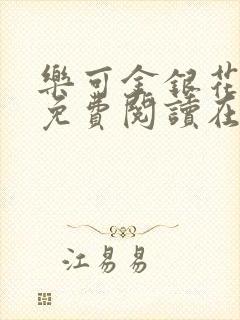 樂可金銀花
免費閱讀在
江易易